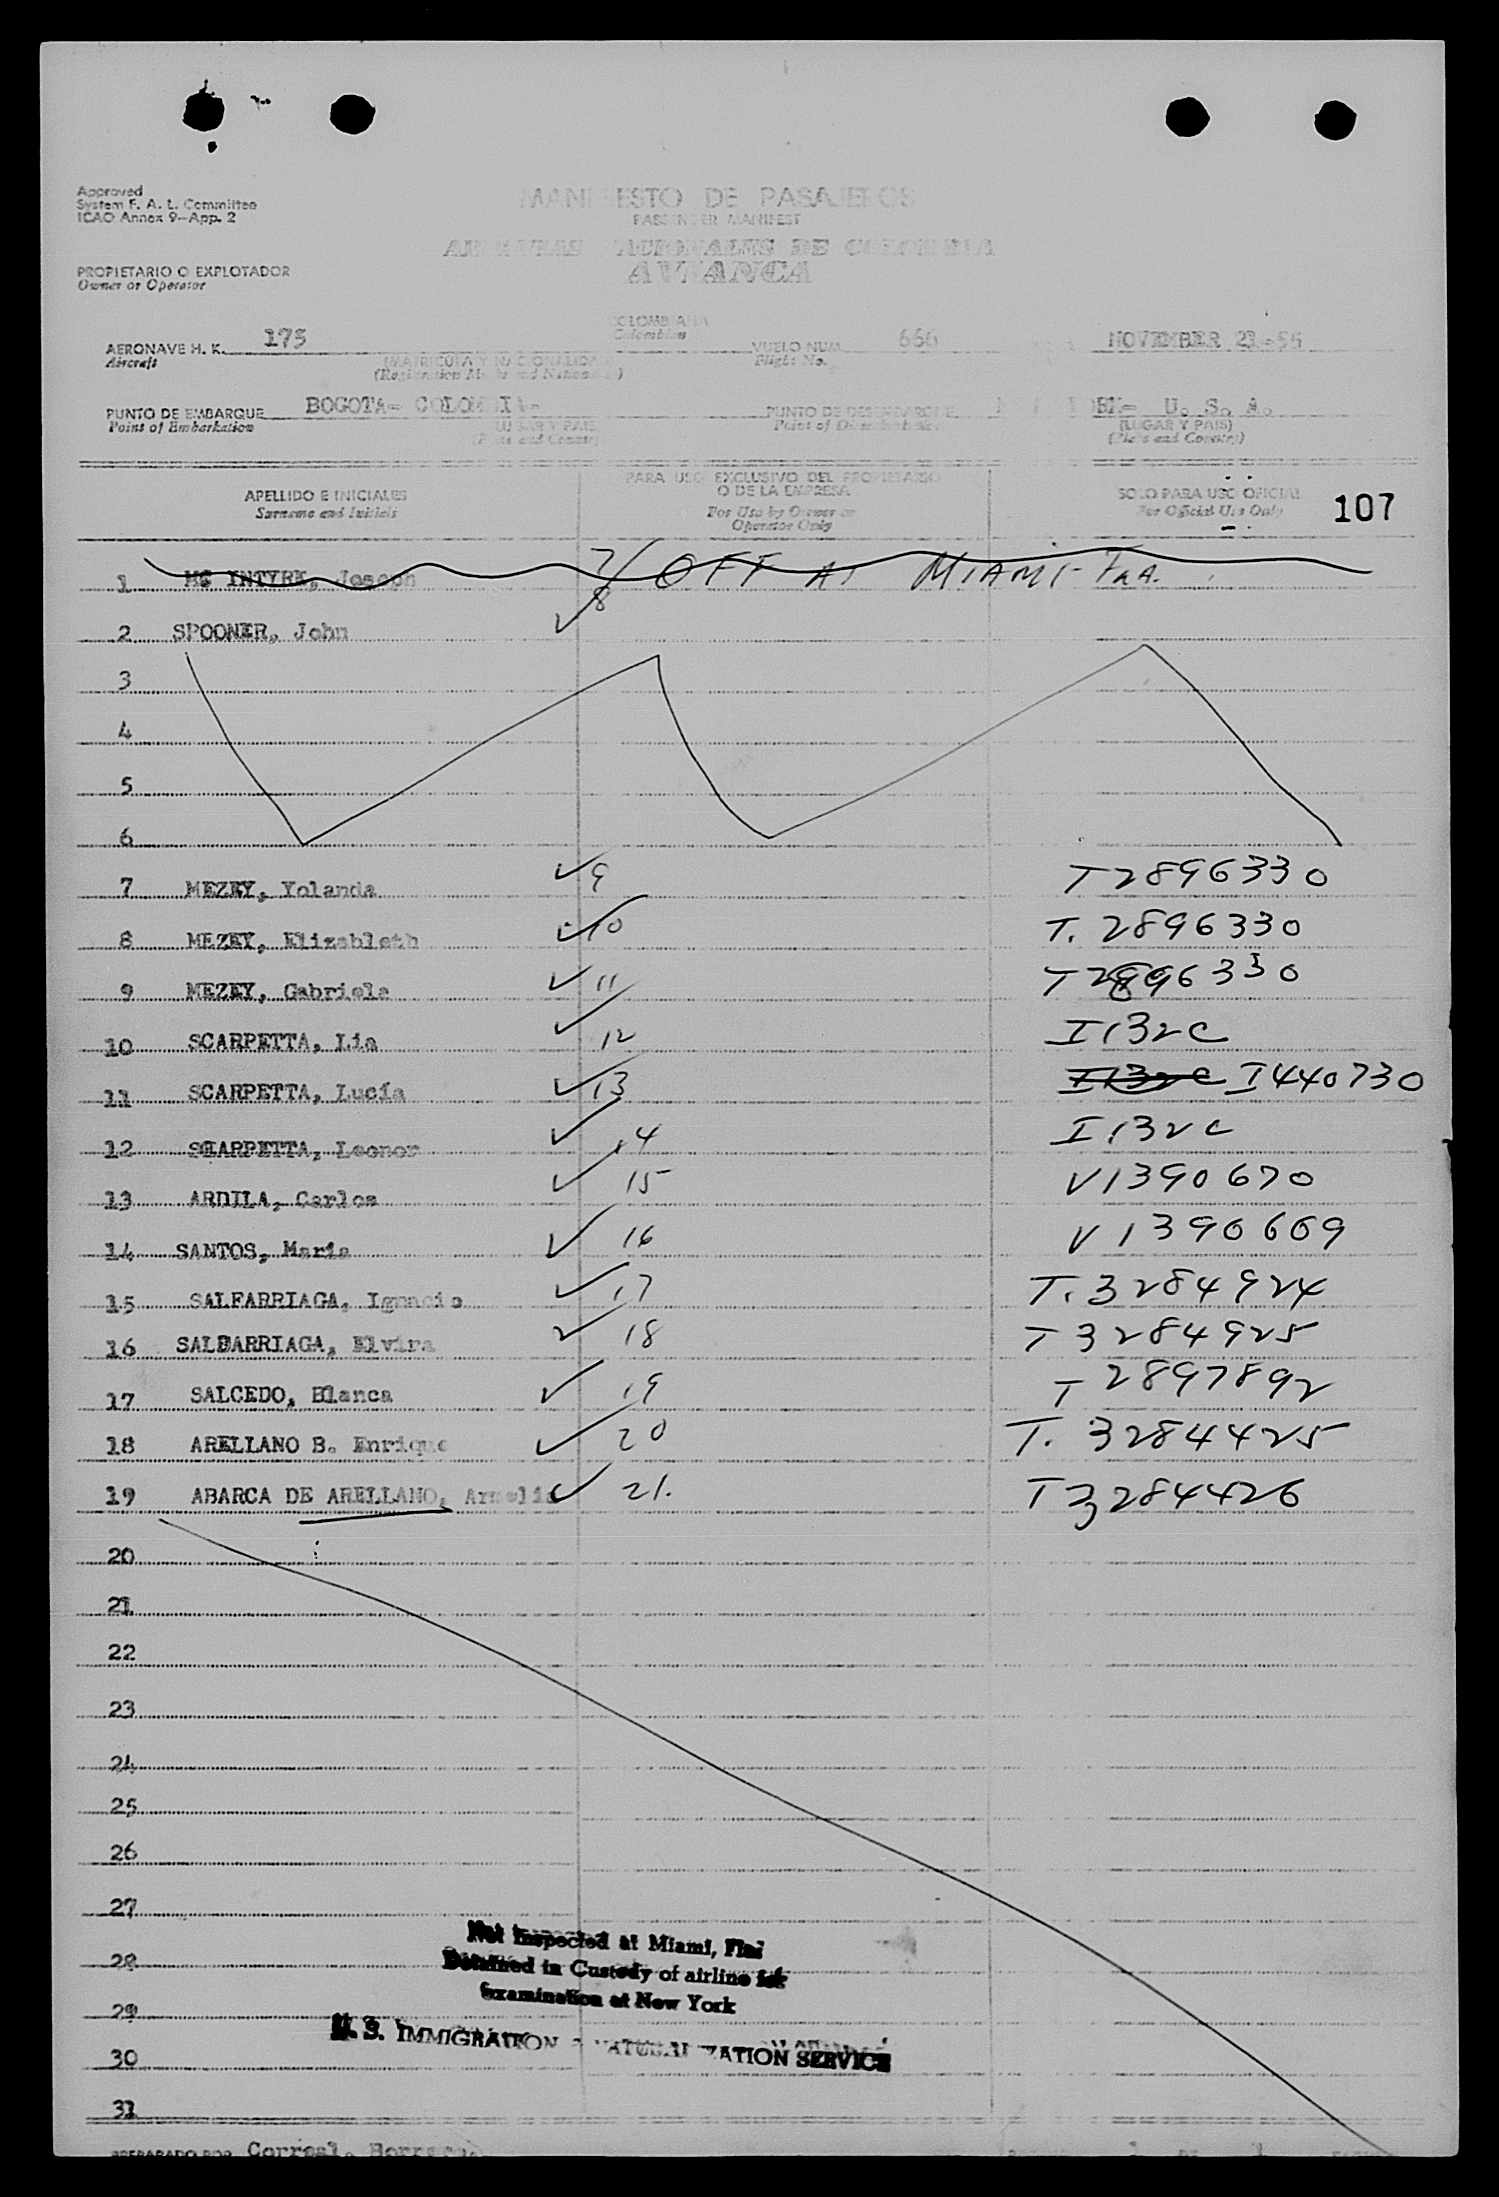 Approved
System F. A. L. Committee
ICAO Annex 9—App. 2
MANIFIESTO DE PASAJEROS
PASSENGER MANIFEST
AEROVIAS NACIONALES DE COLOMBIA
AVIANCA
PROPIETARIO O EXPLOTADOR
Owner or Operator
AERONAVE H. K. 175
Aircraft
(MATRICULA Y NACIONALIDAD)
COLOMBIANA
Colombian
VUELO NUM. 666
Flight No.
NOVEMBER 21-56
PUNTO DE EMBARQUE BOGOTA- COLOMBIA-
Point of Embarkation
(LUGAR Y PAIS)
(Place and Country)
PUNTO DE DESEMBARQUE YORK- U. S. A.
Point of Disembarkation
(LUGAR Y PAIS)
(Place and Country)
APELLIDO E INICIALES
Surname and Initials
PARA USO EXCLUSIVO DEL PROPIETARIO
O DE LA EMPRESA
For Use by Owner or
Operator Only
SOLO PARA USO OFICIAL
For Official Use Only
107
1 MC INTYRE, Joseph 7/ OFF AT MIAMI-FLA.
2 SPOONER, John 8
3
4
5
6
7 MEZEY, Yolanda 9 T2896330
8 MEZEY, Elizableth 10 T. 2896330
9 MEZEY, Gabriela 11 T2896330
10 SCARPETTA, Lia 12 I132c
11 SCARPETTA, Lucía 13 I132c I440730
12 SCARPETTA, Leonor 14 I132c
13 ARDILA, Carlos 15 V1390670
14 SANTOS, Maria 16 V1390669
15 SALFARRIAGA, Ignacio 17 T.3284924
16 SALDARRIAGA, Elvira 18 T3284925
17 SALCEDO, Blanca 19 T2897892
18 ARELLANO B. Enrique 20 T. 3284425
19 ABARCA DE ARELLANO, Amelia 21. T3284426
20
21
22
23
24
25
26
27
28
29
30
31
Not Inspected at Miami, Fla.
Detained in Custody of airline for
Examination at New York
U. S. IMMIGRATION & NATURALIZATION SERVICE
PREPARADO POR Corral,